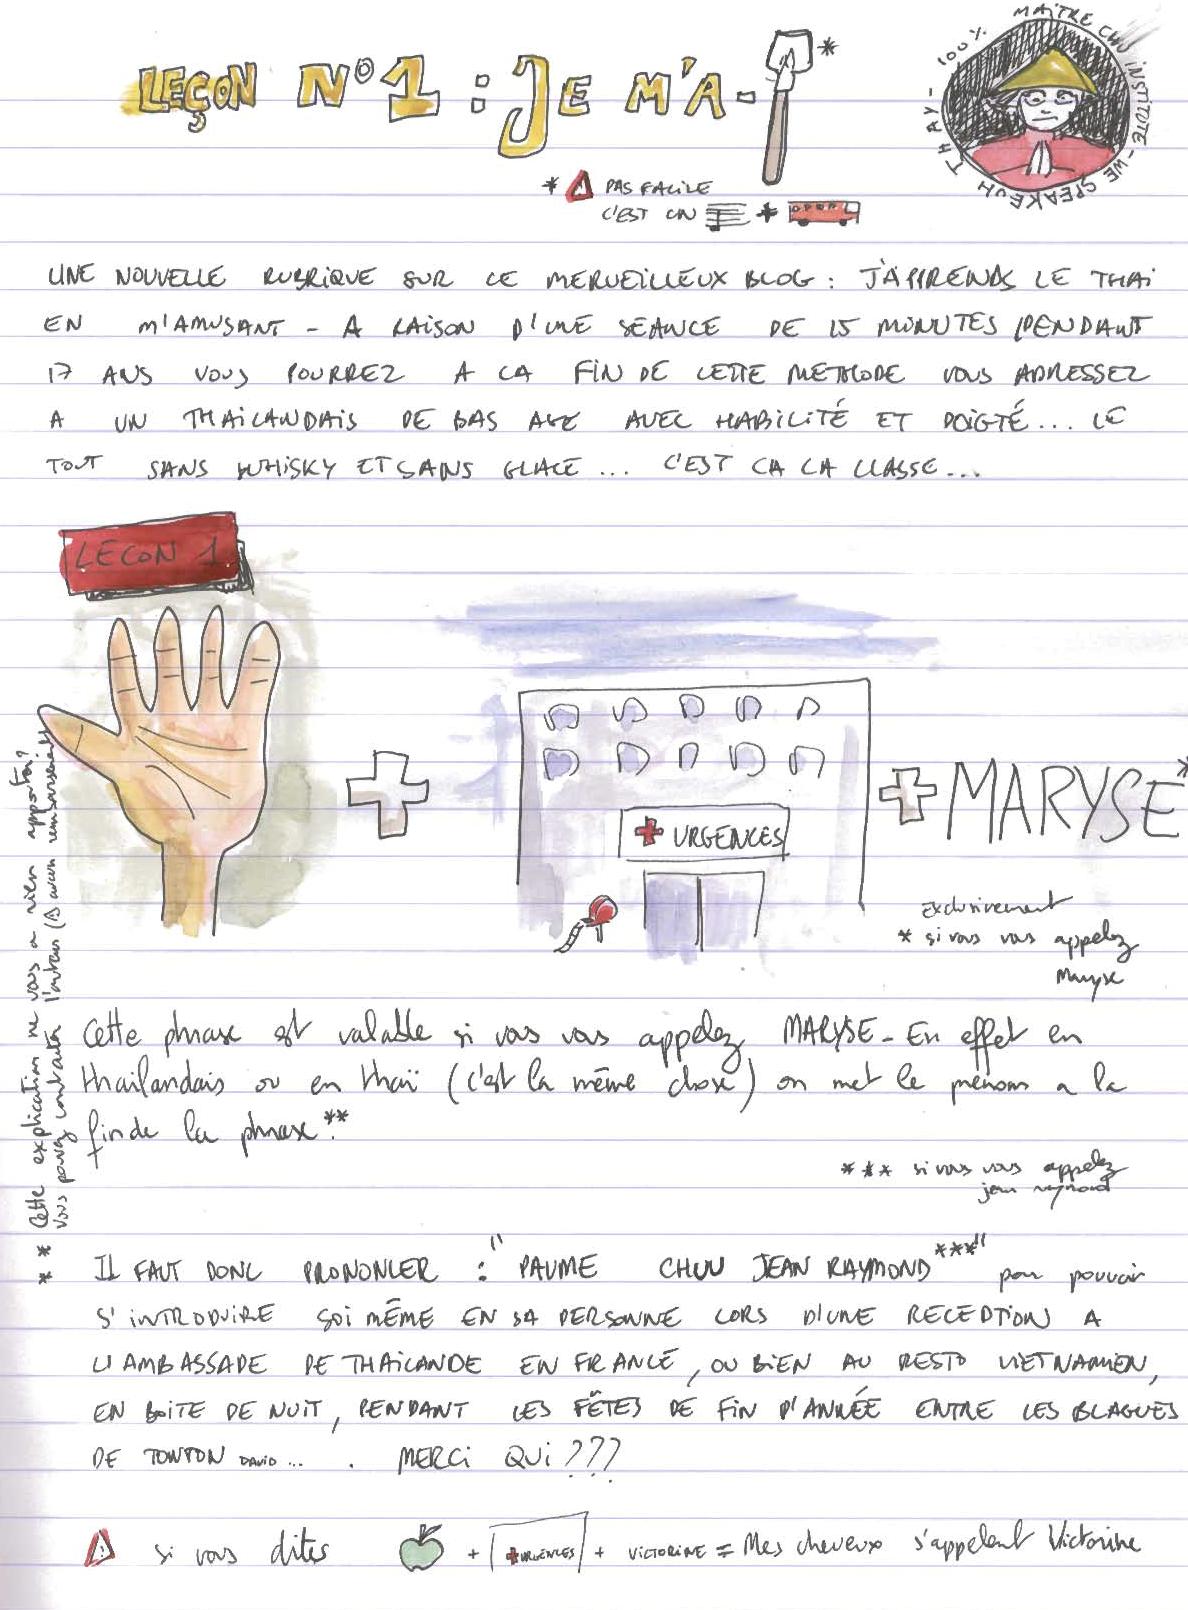 LEÇON N°1 : JE M'A- *
100% MAITRE CHU INSTITUTE - WE SPEAKEUH THAY -
* PAS FACILE
C'EST UN +
UNE NOUVELLE RUBRIQUE SUR CE MERVEILLEUX BLOG : J'APPRENDS LE THAI
EN M'AMUSANT - A RAISON D'UNE SEANCE DE 15 MINUTES PENDANT
17 ANS VOUS POURREZ A LA FIN DE CETTE METHODE VOUS ADRESSEZ
A UN THAILANDAIS DE BAS AGE AVEC HABILITÉ ET DOIGTÉ... LE
TOUT SANS WHISKY ET SANS GLACE... C'EST CA LA CLASSE...
LECON 1
+ URGENCES + MARYSE*
Exclusivement
* si vous vous appelez
Maryse
Cette phrase est valable si vous vous appelez MARYSE - En effet en
thailandais ou en thaï (c'est la même chose) on met le prénom a la
fin de la phrase.**
** Cette explication ne vous a rien apporté?
Vous pouvez contacter l'auteur (aucun remboursement
*** si vous vous appelez
jean raymond
IL FAUT DONC PRONONCER : "PAUME CHUU JEAN RAYMOND***" pour pouvoir
S'INTRODUIRE SOI MÊME EN SA PERSONNE LORS D'UNE RECEPTION A
L'AMBASSADE DE THAILANDE EN FRANCE, OU BIEN AU RESTO VIETNAMIEN,
EN BOITE DE NUIT, PENDANT LES FÊTES DE FIN D'ANNÉE ENTRE LES BLAGUES
DE TONTON DAVID... . MERCI QUI ???
si vous dites + URGENCES + VICTORINE = Mes cheveux s'appelent Victorine